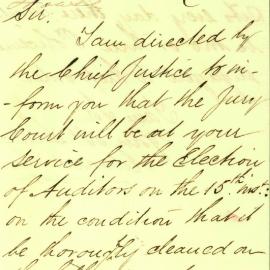 Sir,
I am directed by
the Chief Justice to in-
-form you that the Jury
Court will be at your
service for the Election
of Auditors on the 15th inst:
on the condition that it
be thoroughly cleaned on